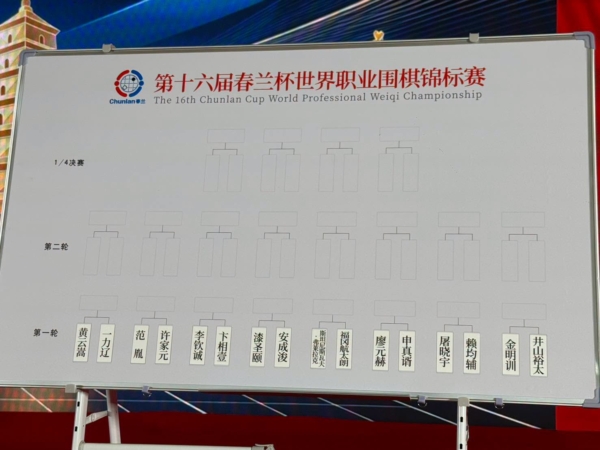 第十六届春兰杯世界职业围棋锦标赛
The 16th Chunlan Cup World Professional Weiqi Championship
Chunlan春兰
1/4决赛
第二轮
第一轮
黄云嵩
一力辽
范胤
许家元
李钦诚
卞相壹
漆圣颐
安成浚
福冈航太朗
廖元赫
申真谞
屠晓宇
赖均辅
金明训
井山裕太